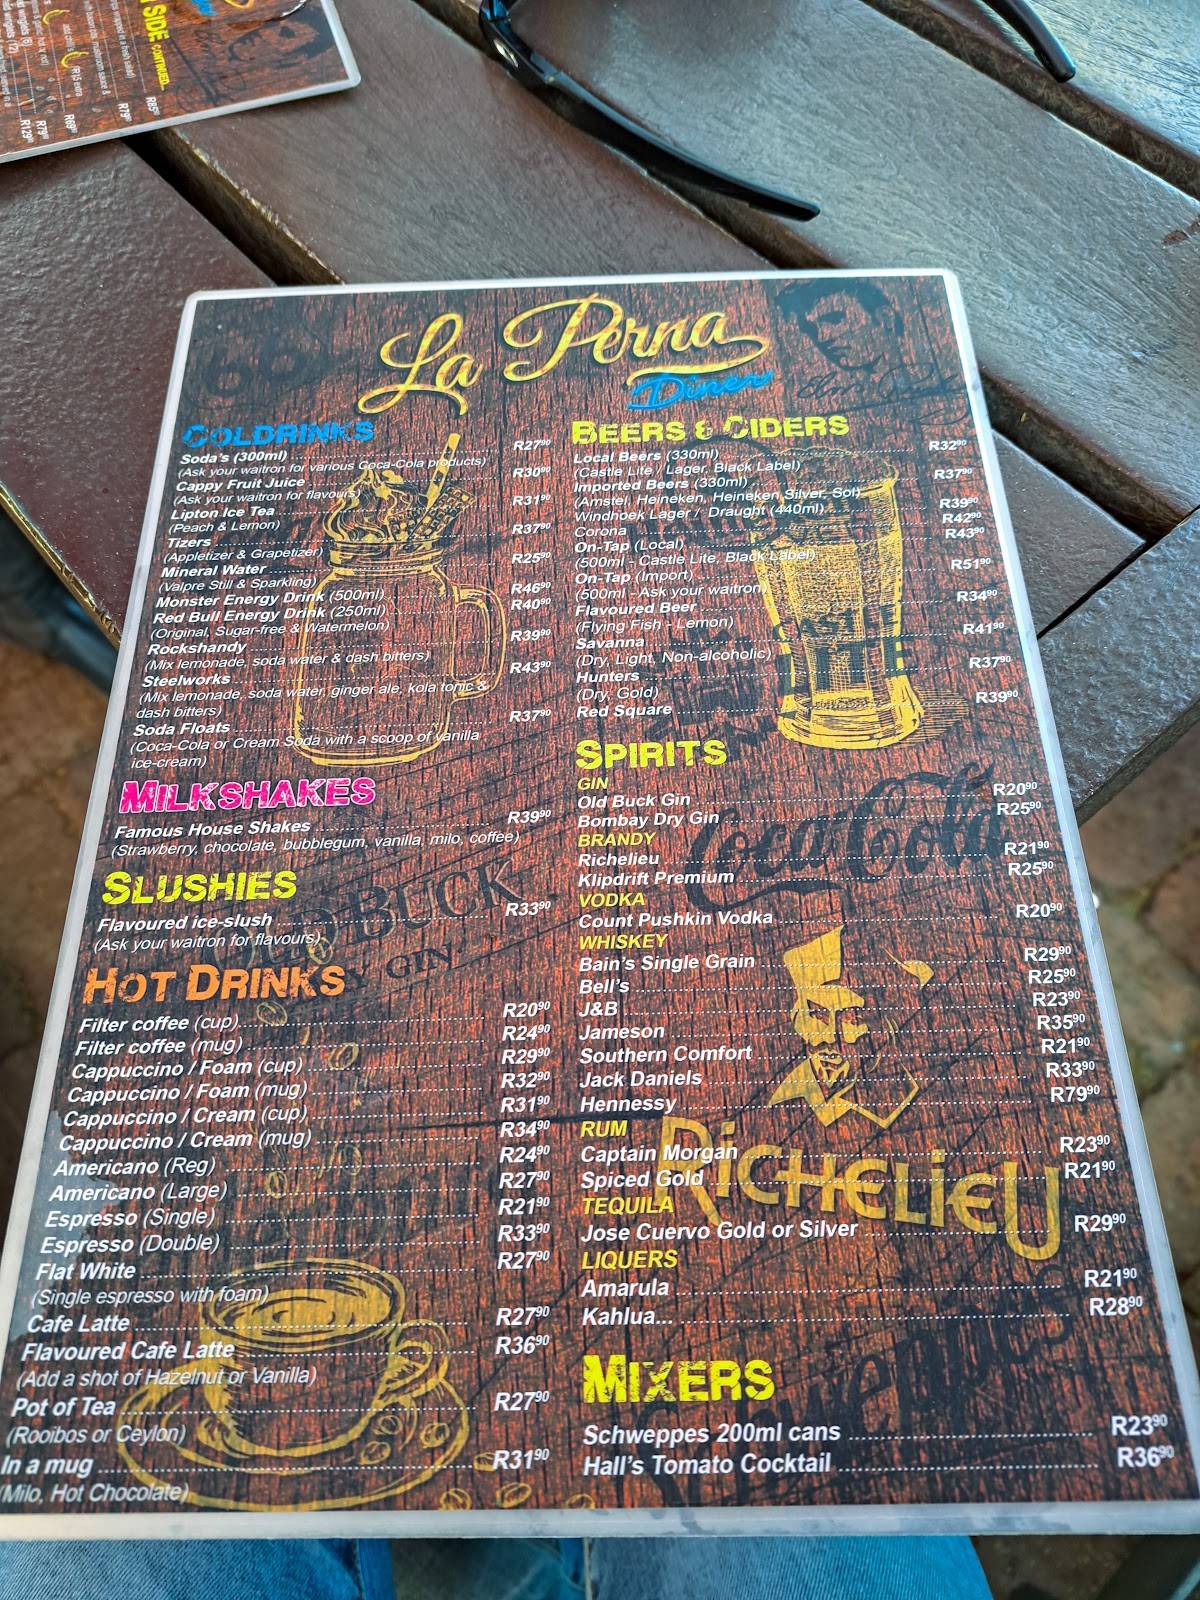 SIDE CONTINUED...
R85⁹⁰
R79⁹⁰
(R15 extra
R69⁹⁰
R79⁹⁰
R129⁹⁰
La Perna
Diner
COLDRINKS
Soda's (300ml) R27⁹⁰
(Ask your waitron for various Coca-Cola products)
Cappy Fruit Juice R30⁹⁰
(Ask your waitron for flavours)
Lipton Ice Tea R31⁹⁰
(Peach & Lemon)
Tizers R37⁹⁰
(Appletizer & Grapetizer)
Mineral Water R25⁹⁰
(Valpre Still & Sparkling)
Monster Energy Drink (500ml) R46⁹⁰
Red Bull Energy Drink (250ml) R40⁹⁰
(Original, Sugar-free & Watermelon)
Rockshandy R39⁹⁰
(Mix lemonade, soda water & dash bitters)
Steelworks R43⁹⁰
(Mix lemonade, soda water, ginger ale, kola tonic &
dash bitters)
Soda Floats R37⁹⁰
(Coca-Cola or Cream Soda with a scoop of vanilla
ice-cream)
MILKSHAKES
Famous House Shakes R39⁹⁰
(Strawberry, chocolate, bubblegum, vanilla, milo, coffee)
SLUSHIES
Flavoured ice-slush R33⁹⁰
(Ask your waitron for flavours)
HOT DRINKS
Filter coffee (cup) R20⁹⁰
Filter coffee (mug) R24⁹⁰
Cappuccino / Foam (cup) R29⁹⁰
Cappuccino / Foam (mug) R32⁹⁰
Cappuccino / Cream (cup) R31⁹⁰
Cappuccino / Cream (mug) R34⁹⁰
Americano (Reg) R24⁹⁰
Americano (Large) R27⁹⁰
Espresso (Single) R21⁹⁰
Espresso (Double) R33⁹⁰
Flat White R27⁹⁰
(Single espresso with foam)
Cafe Latte R27⁹⁰
Flavoured Cafe Latte R36⁹⁰
(Add a shot of Hazelnut or Vanilla)
Pot of Tea R27⁹⁰
(Rooibos or Ceylon)
In a mug R31⁹⁰
(Milo, Hot Chocolate)
BEERS & CIDERS
Local Beers (330ml) R32⁹⁰
(Castle Lite / Lager, Black Label)
Imported Beers (330ml) R37⁹⁰
(Amstel, Heineken, Heineken Silver, Sol)
Windhoek Lager / Draught (440ml) R39⁹⁰
Corona R42⁹⁰
On-Tap (Local) R43⁹⁰
(500ml - Castle Lite, Black Label)
On-Tap (Import) R51⁹⁰
(500ml - Ask your waitron)
Flavoured Beer R34⁹⁰
(Flying Fish - Lemon)
Savanna R41⁹⁰
(Dry, Light, Non-alcoholic)
Hunters R37⁹⁰
(Dry, Gold)
Red Square R39⁹⁰
SPIRITS
GIN
Old Buck Gin R20⁹⁰
Bombay Dry Gin R25⁹⁰
BRANDY
Richelieu R21⁹⁰
Klipdrift Premium R25⁹⁰
VODKA
Count Pushkin Vodka R20⁹⁰
WHISKEY
Bain's Single Grain R29⁹⁰
Bell's R25⁹⁰
J&B R23⁹⁰
Jameson R35⁹⁰
Southern Comfort R21⁹⁰
Jack Daniels R33⁹⁰
Hennessy R79⁹⁰
RUM
Captain Morgan R23⁹⁰
Spiced Gold R21⁹⁰
TEQUILA
Jose Cuervo Gold or Silver R29⁹⁰
LIQUERS
Amarula R21⁹⁰
Kahlua... R28⁹⁰
MIXERS
Schweppes 200ml cans R23⁹⁰
Hall's Tomato Cocktail R36⁹⁰
Coca-Cola
OLD BUCK
GIN
RICHELIEU